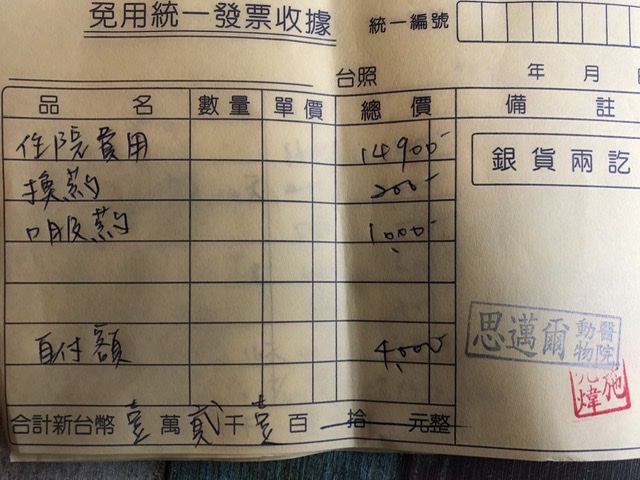 免用統一發票收據 統一編號
台照 年 月
品名 數量 單價 總價 備註
住院費用 14900-
換葯 200-
口服葯 1000-
銀貨兩訖
自付額 4,000-
思邁爾動物醫院
施
煒
合計新台幣壹萬貳千壹百拾元整